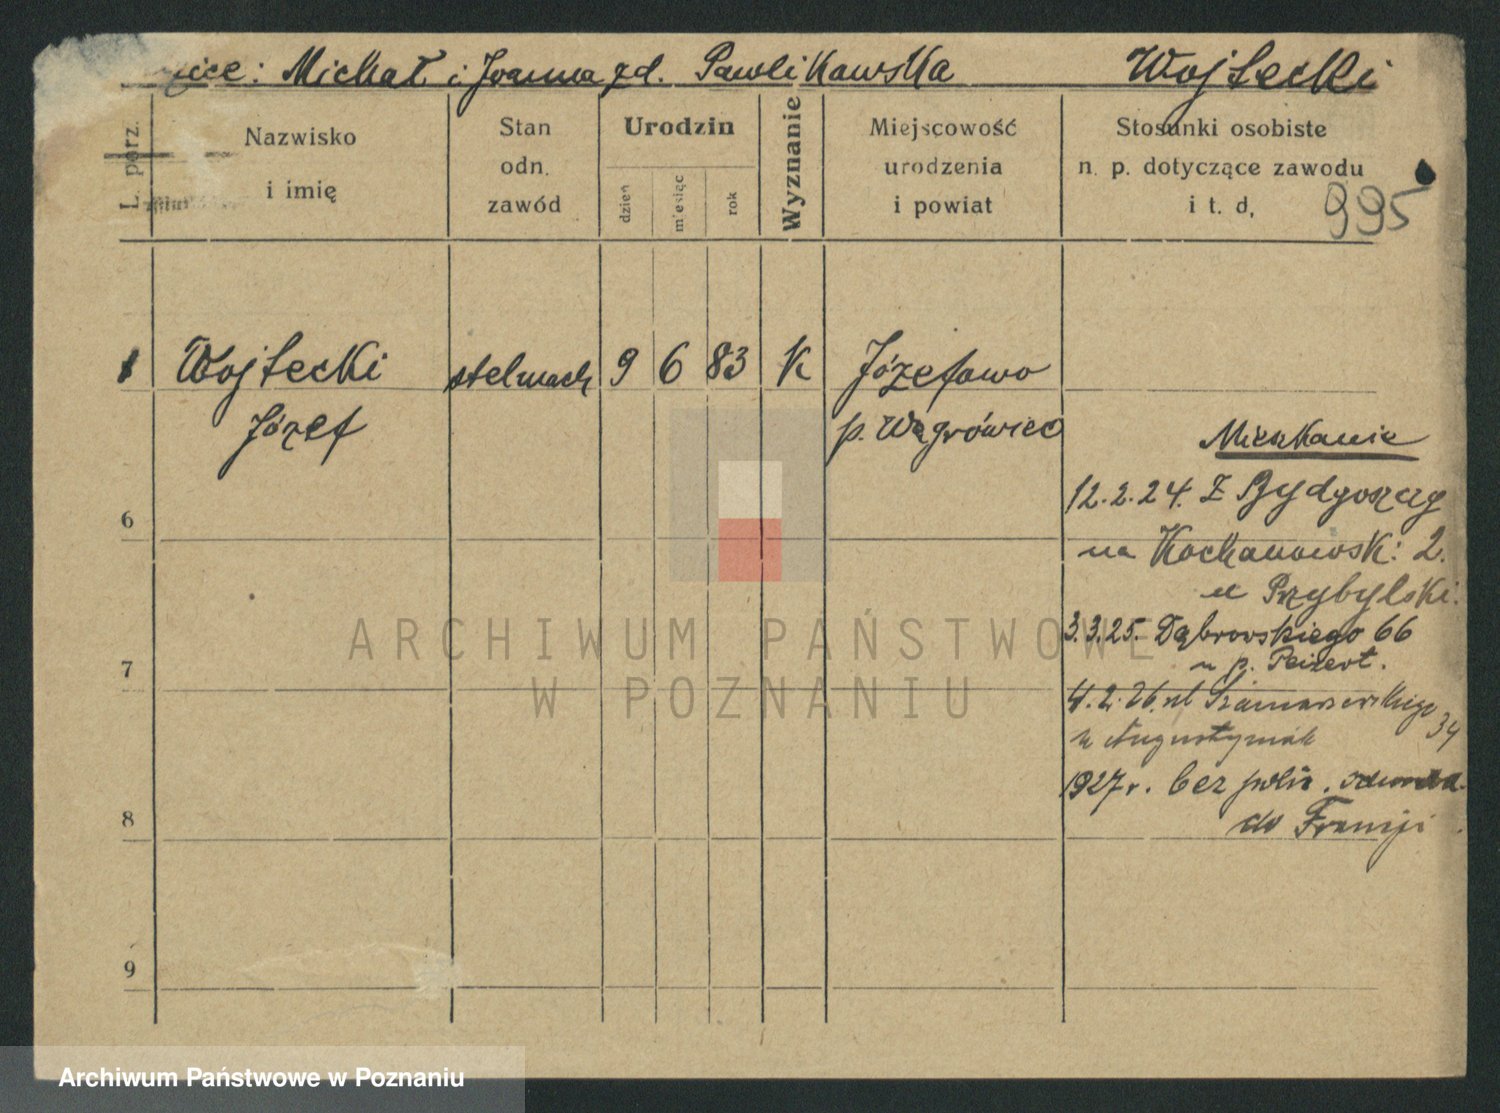 Michał i Joanna zd. Pawlikowska Wojtecki
L. porz.
Nazwisko
i imię
Stan
odn.
zawód
Urodzin
dzień
miesiąc
rok
Wyznanie
Miejscowość
urodzenia
i powiat
Stosunki osobiste
n. p. dotyczące zawodu
i t. d.
995
1 Wojtecki stelmach 9 6 83 K Józefowo
Józef p. Wągrówiec
Mieszkanie
12.2.24. Z Bydgoszczy
na Kochanowsk: 2.
u Przybylski.
3.3.25. Dąbrowskiego 66
u p. Peizert.
4.2.26. ul Szamarzewskiego 34
u Augustyniak
1927 r. bez
do Francji
6
7
8
9
ARCHIWUM PAŃSTWOWE
W POZNANIU
Archiwum Państwowe w Poznaniu